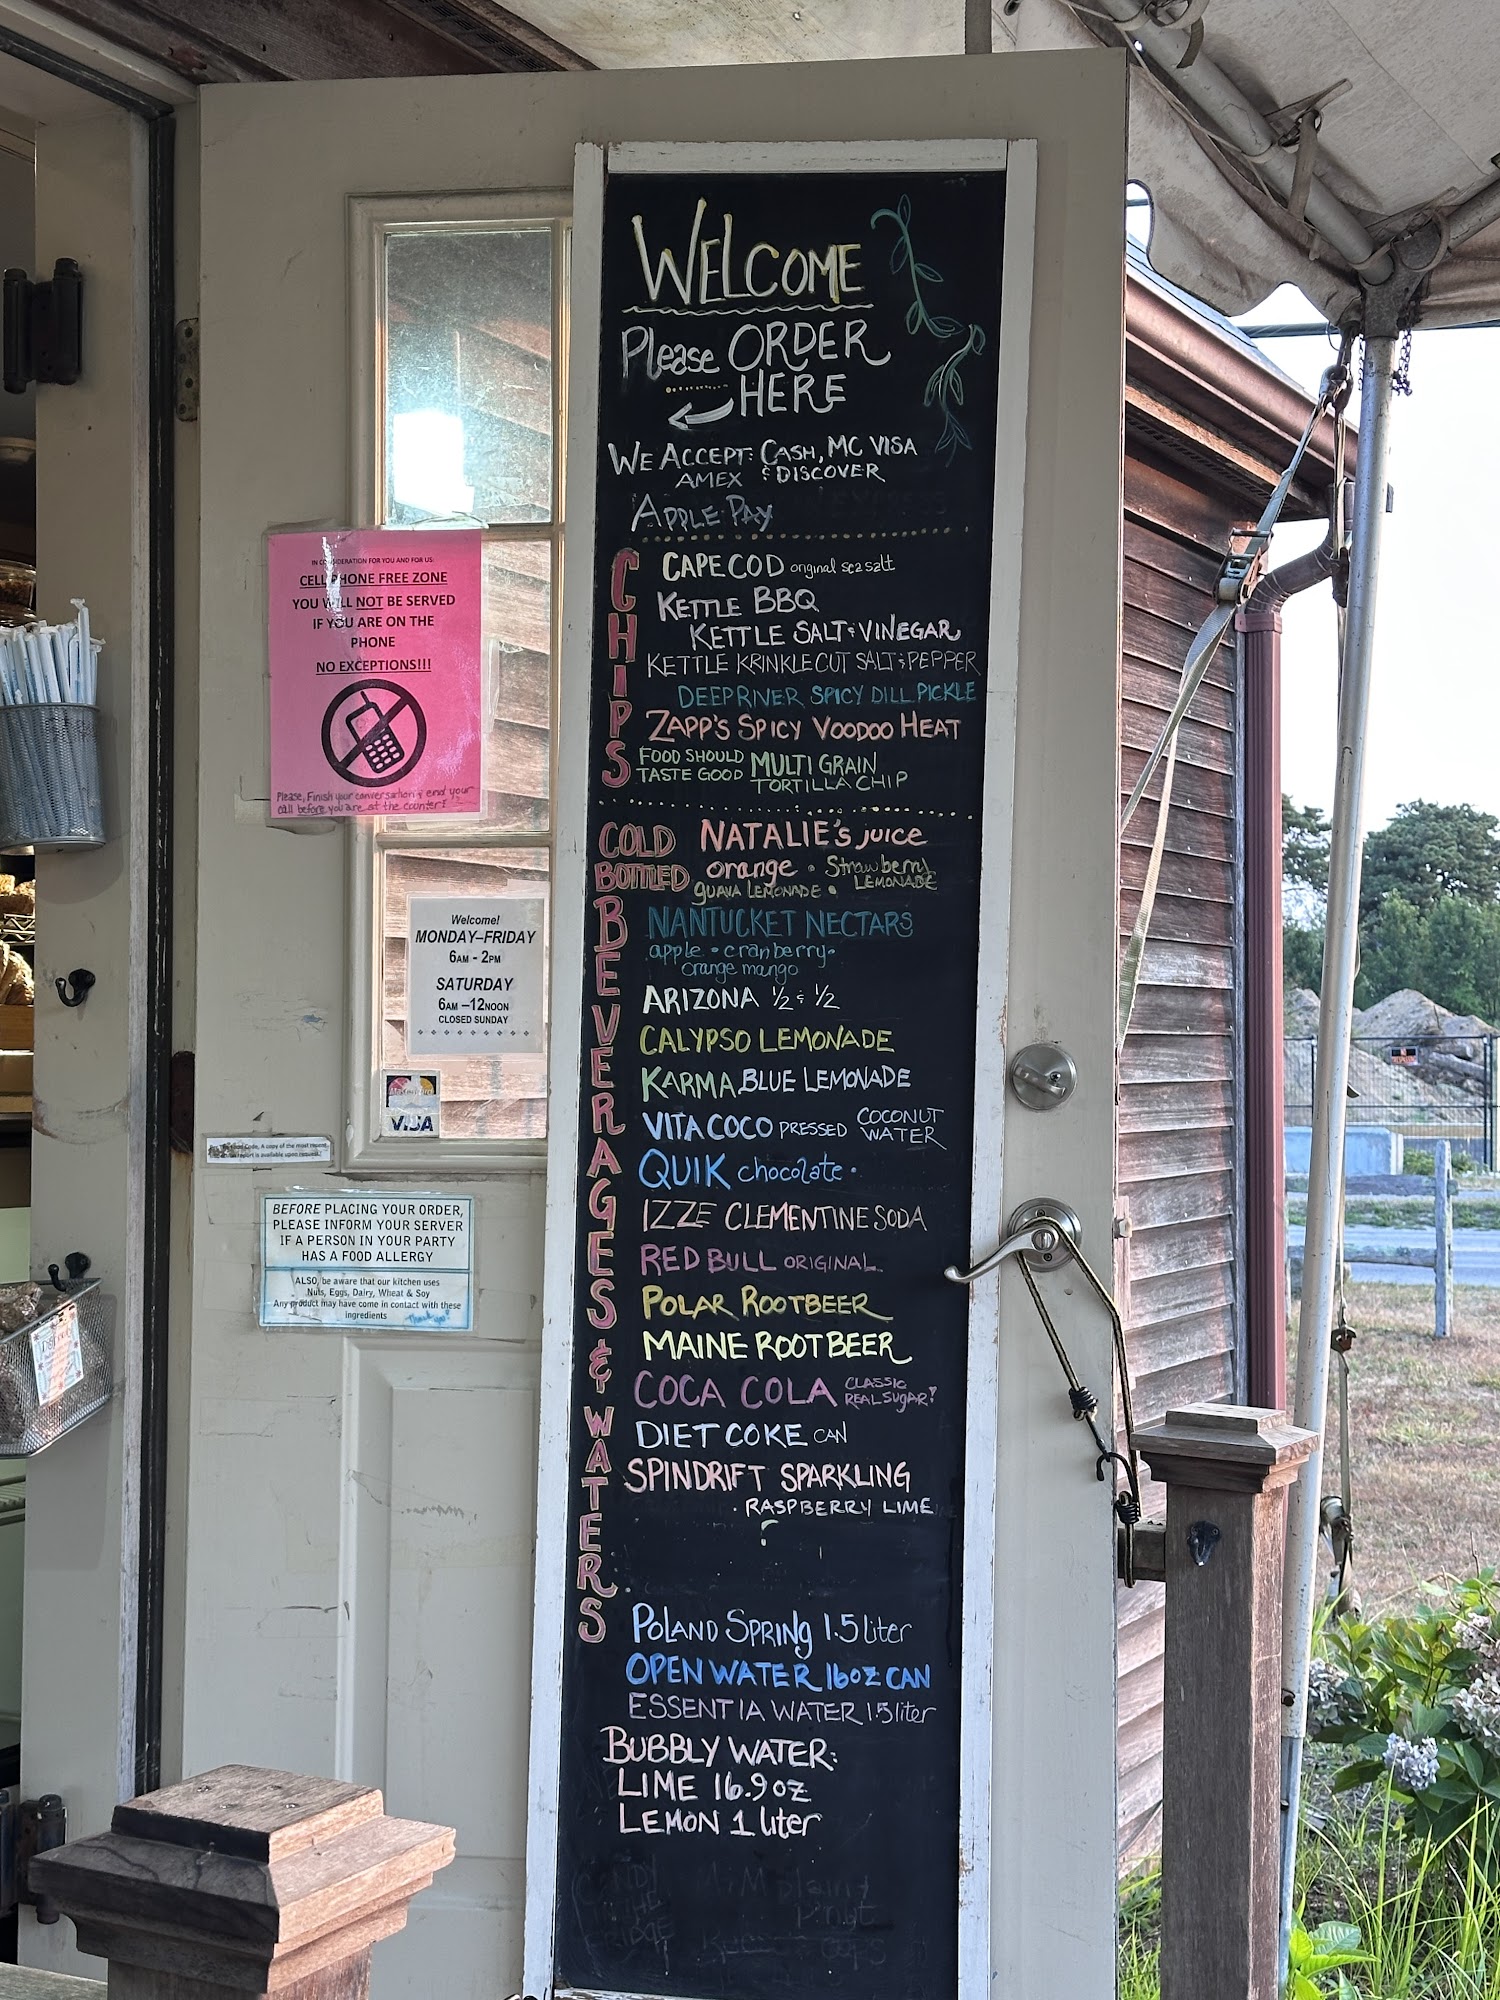 WELCOME
Please ORDER
HERE
WE ACCEPT: CASH, MC VISA
AMEX & DISCOVER
APPLE PAY
CHIPS
CAPE COD original sea salt
KETTLE BBQ
KETTLE SALT & VINEGAR
KETTLE KRINKLE CUT SALT & PEPPER
DEEP RIVER SPICY DILL PICKLE
ZAPP'S SPICY VOODOO HEAT
FOOD SHOULD TASTE GOOD MULTI GRAIN
TORTILLA CHIP
COLD
BOTTLED
BEVERAGES & WATERS
NATALIE's juice
orange • Strawberry
LEMONADE
guava LEMONADE •
NANTUCKET NECTARS
apple • cranberry •
orange mango
ARIZONA ½ & ½
CALYPSO LEMONADE
KARMA BLUE LEMONADE
VITA COCO PRESSED COCONUT
WATER
QUIK chocolate •
IZZE CLEMENTINE SODA
RED BULL ORIGINAL
POLAR ROOTBEER
MAINE ROOT BEER
COCA COLA CLASSIC
REAL SUGAR!
DIET COKE CAN
SPINDRIFT SPARKLING
• RASPBERRY LIME
POLAND SPRING 1.5 liter
OPEN WATER 16oz CAN
ESSENTIA WATER 1.5 liter
BUBBLY WATER:
LIME 16.9 oz
LEMON 1 liter
IN CONSIDERATION FOR YOU AND FOR US:
CELL PHONE FREE ZONE
YOU WILL NOT BE SERVED
IF YOU ARE ON THE
PHONE
NO EXCEPTIONS!!!
Please, Finish your conversation & end your
call before you are at the counter!
Welcome!
MONDAY–FRIDAY
6AM - 2PM
SATURDAY
6AM –12NOON
CLOSED SUNDAY
VISA
Code, A copy of the most recent
report is available upon request.
BEFORE PLACING YOUR ORDER,
PLEASE INFORM YOUR SERVER
IF A PERSON IN YOUR PARTY
HAS A FOOD ALLERGY
ALSO, be aware that our kitchen uses
Nuts, Eggs, Dairy, Wheat & Soy
Any product may have come in contact with these
ingredients
Thank you!